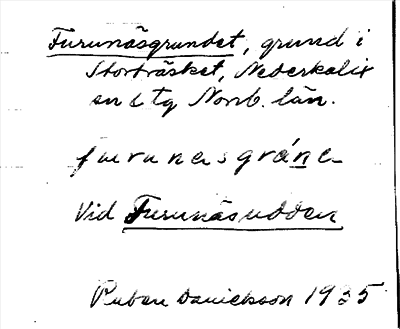 Furunäsgrundet, grund i
Storträsket, Nederkalix
sn o tg Norrb. län.
furunesgráne
Vid Furunäsudden
Ruben Danielsson 1935